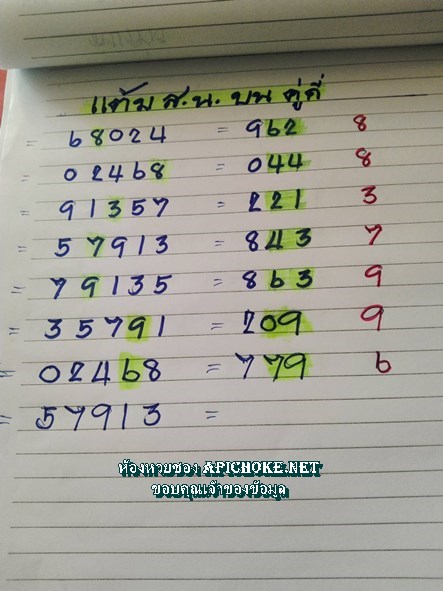 แต้ม ส.น. บน คู่คี่
= 68024 = 962 8
= 02468 = 044 8
= 91357 = 221 3
= 57913 = 843 7
= 79135 = 863 9
= 35791 = 209 9
= 02468 = 779 6
= 57913 =
ห้องหวยซอง APICHOKE.NET
ขอบคุณเจ้าของข้อมูล